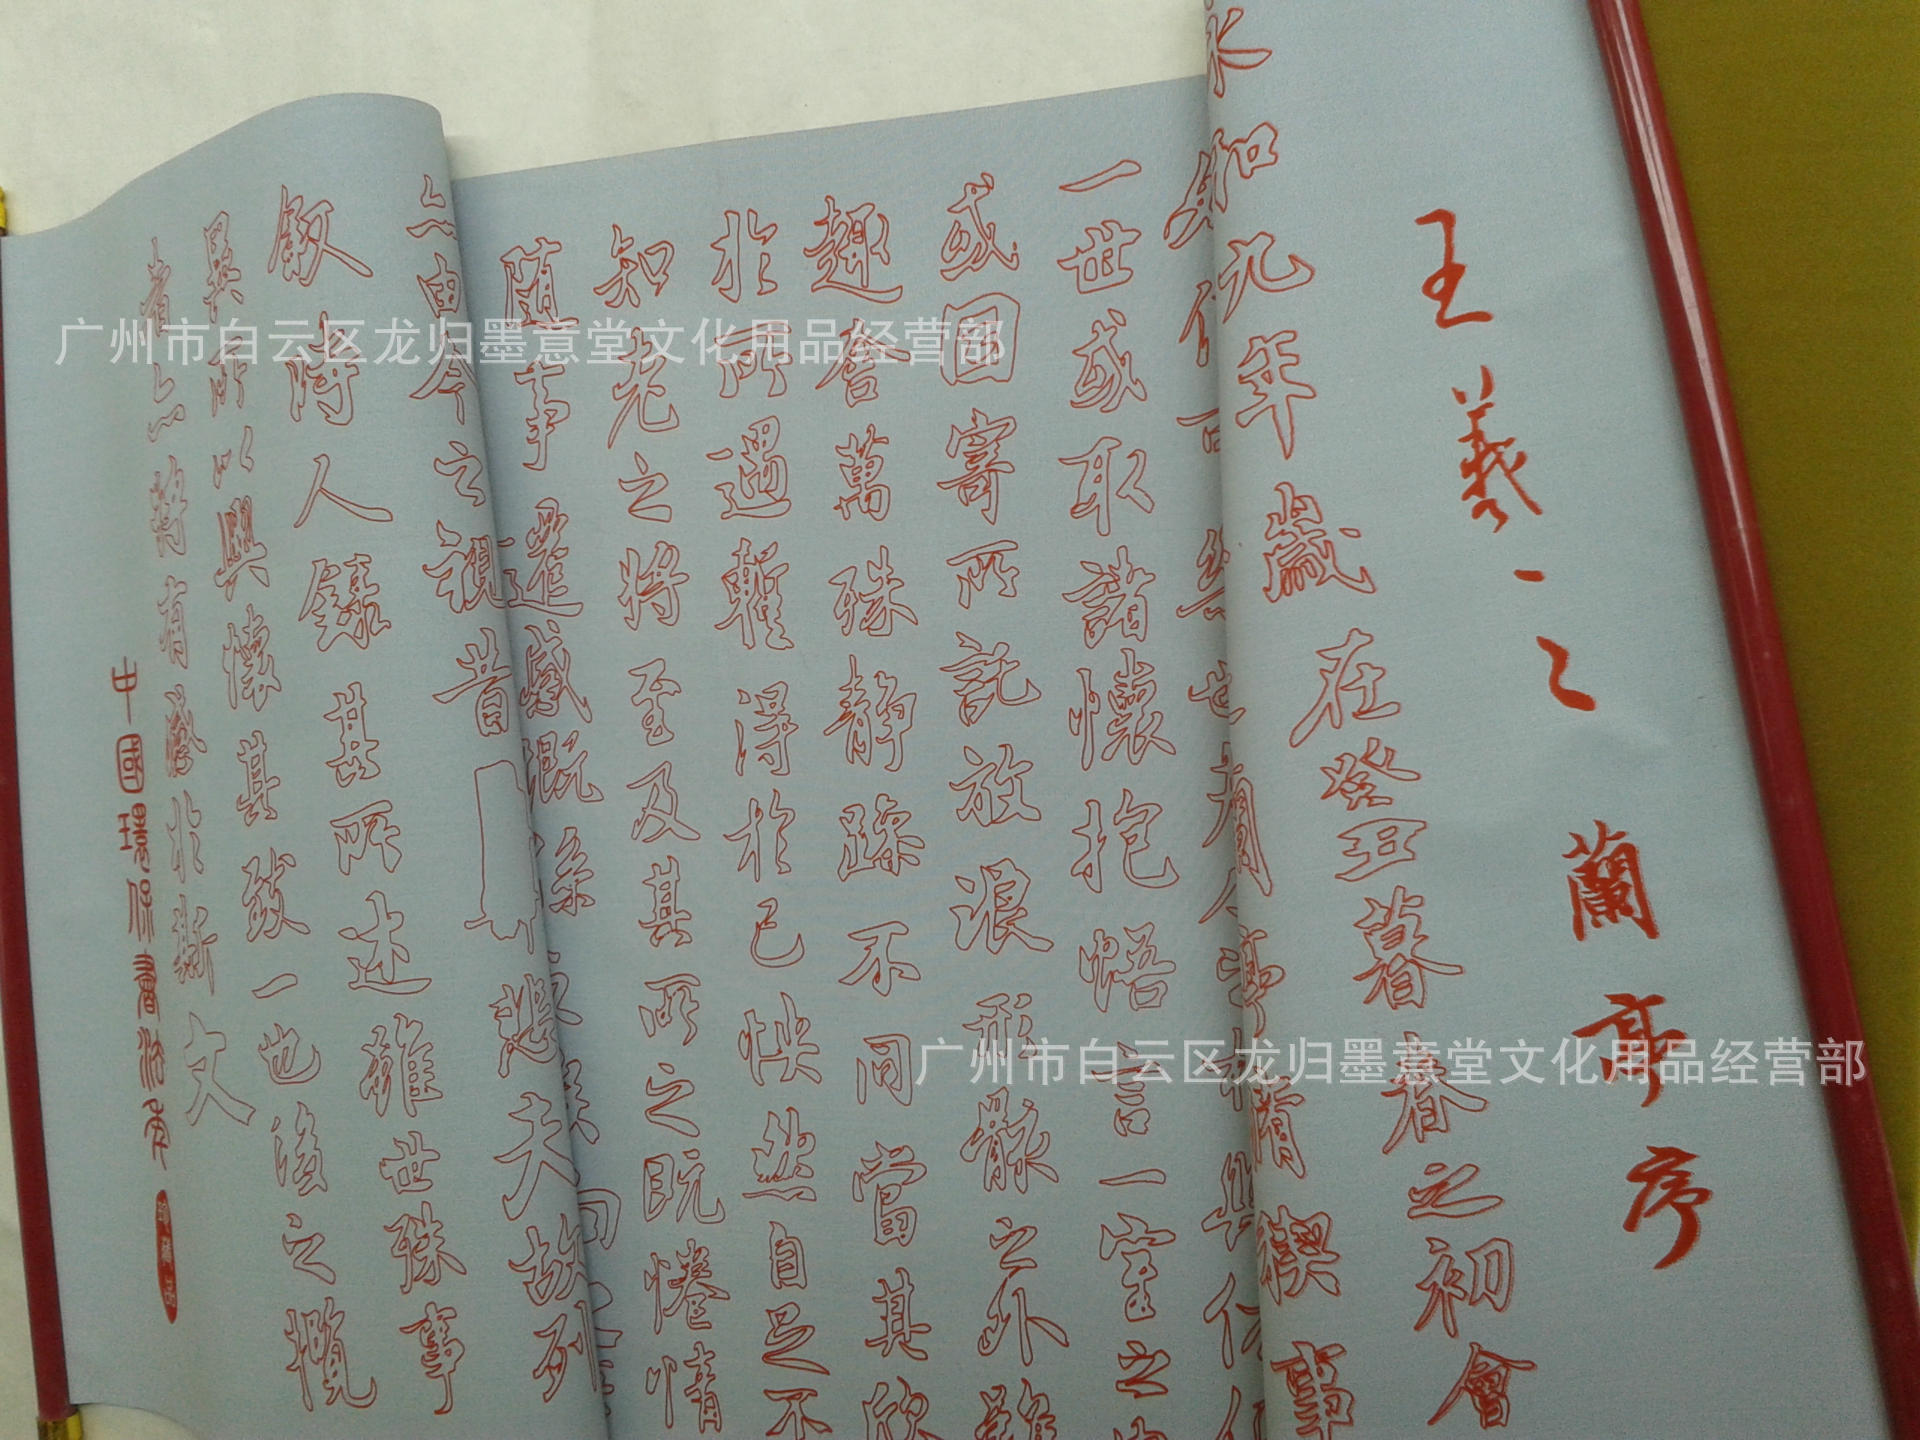 王羲之蘭亭序
永和九年歲在癸丑暮春之初會
脩稧事
一世或取諸懷抱悟言一室之
或因寄所託放浪形骸之外雖
趣舍萬殊静躁不同當其欣
於所遇暫得於己怏然自足不
知老之將至及其所之既惓情
随事遷感慨係
亡由今之視昔
悲夫故列
叙時人録其所述雖世殊事
異所以興懷其致一也後之攬
者亦將有感於斯文
中國環保書法布
广州市白云区龙归墨意堂文化用品经营部
广州市白云区龙归墨意堂文化用品经营部